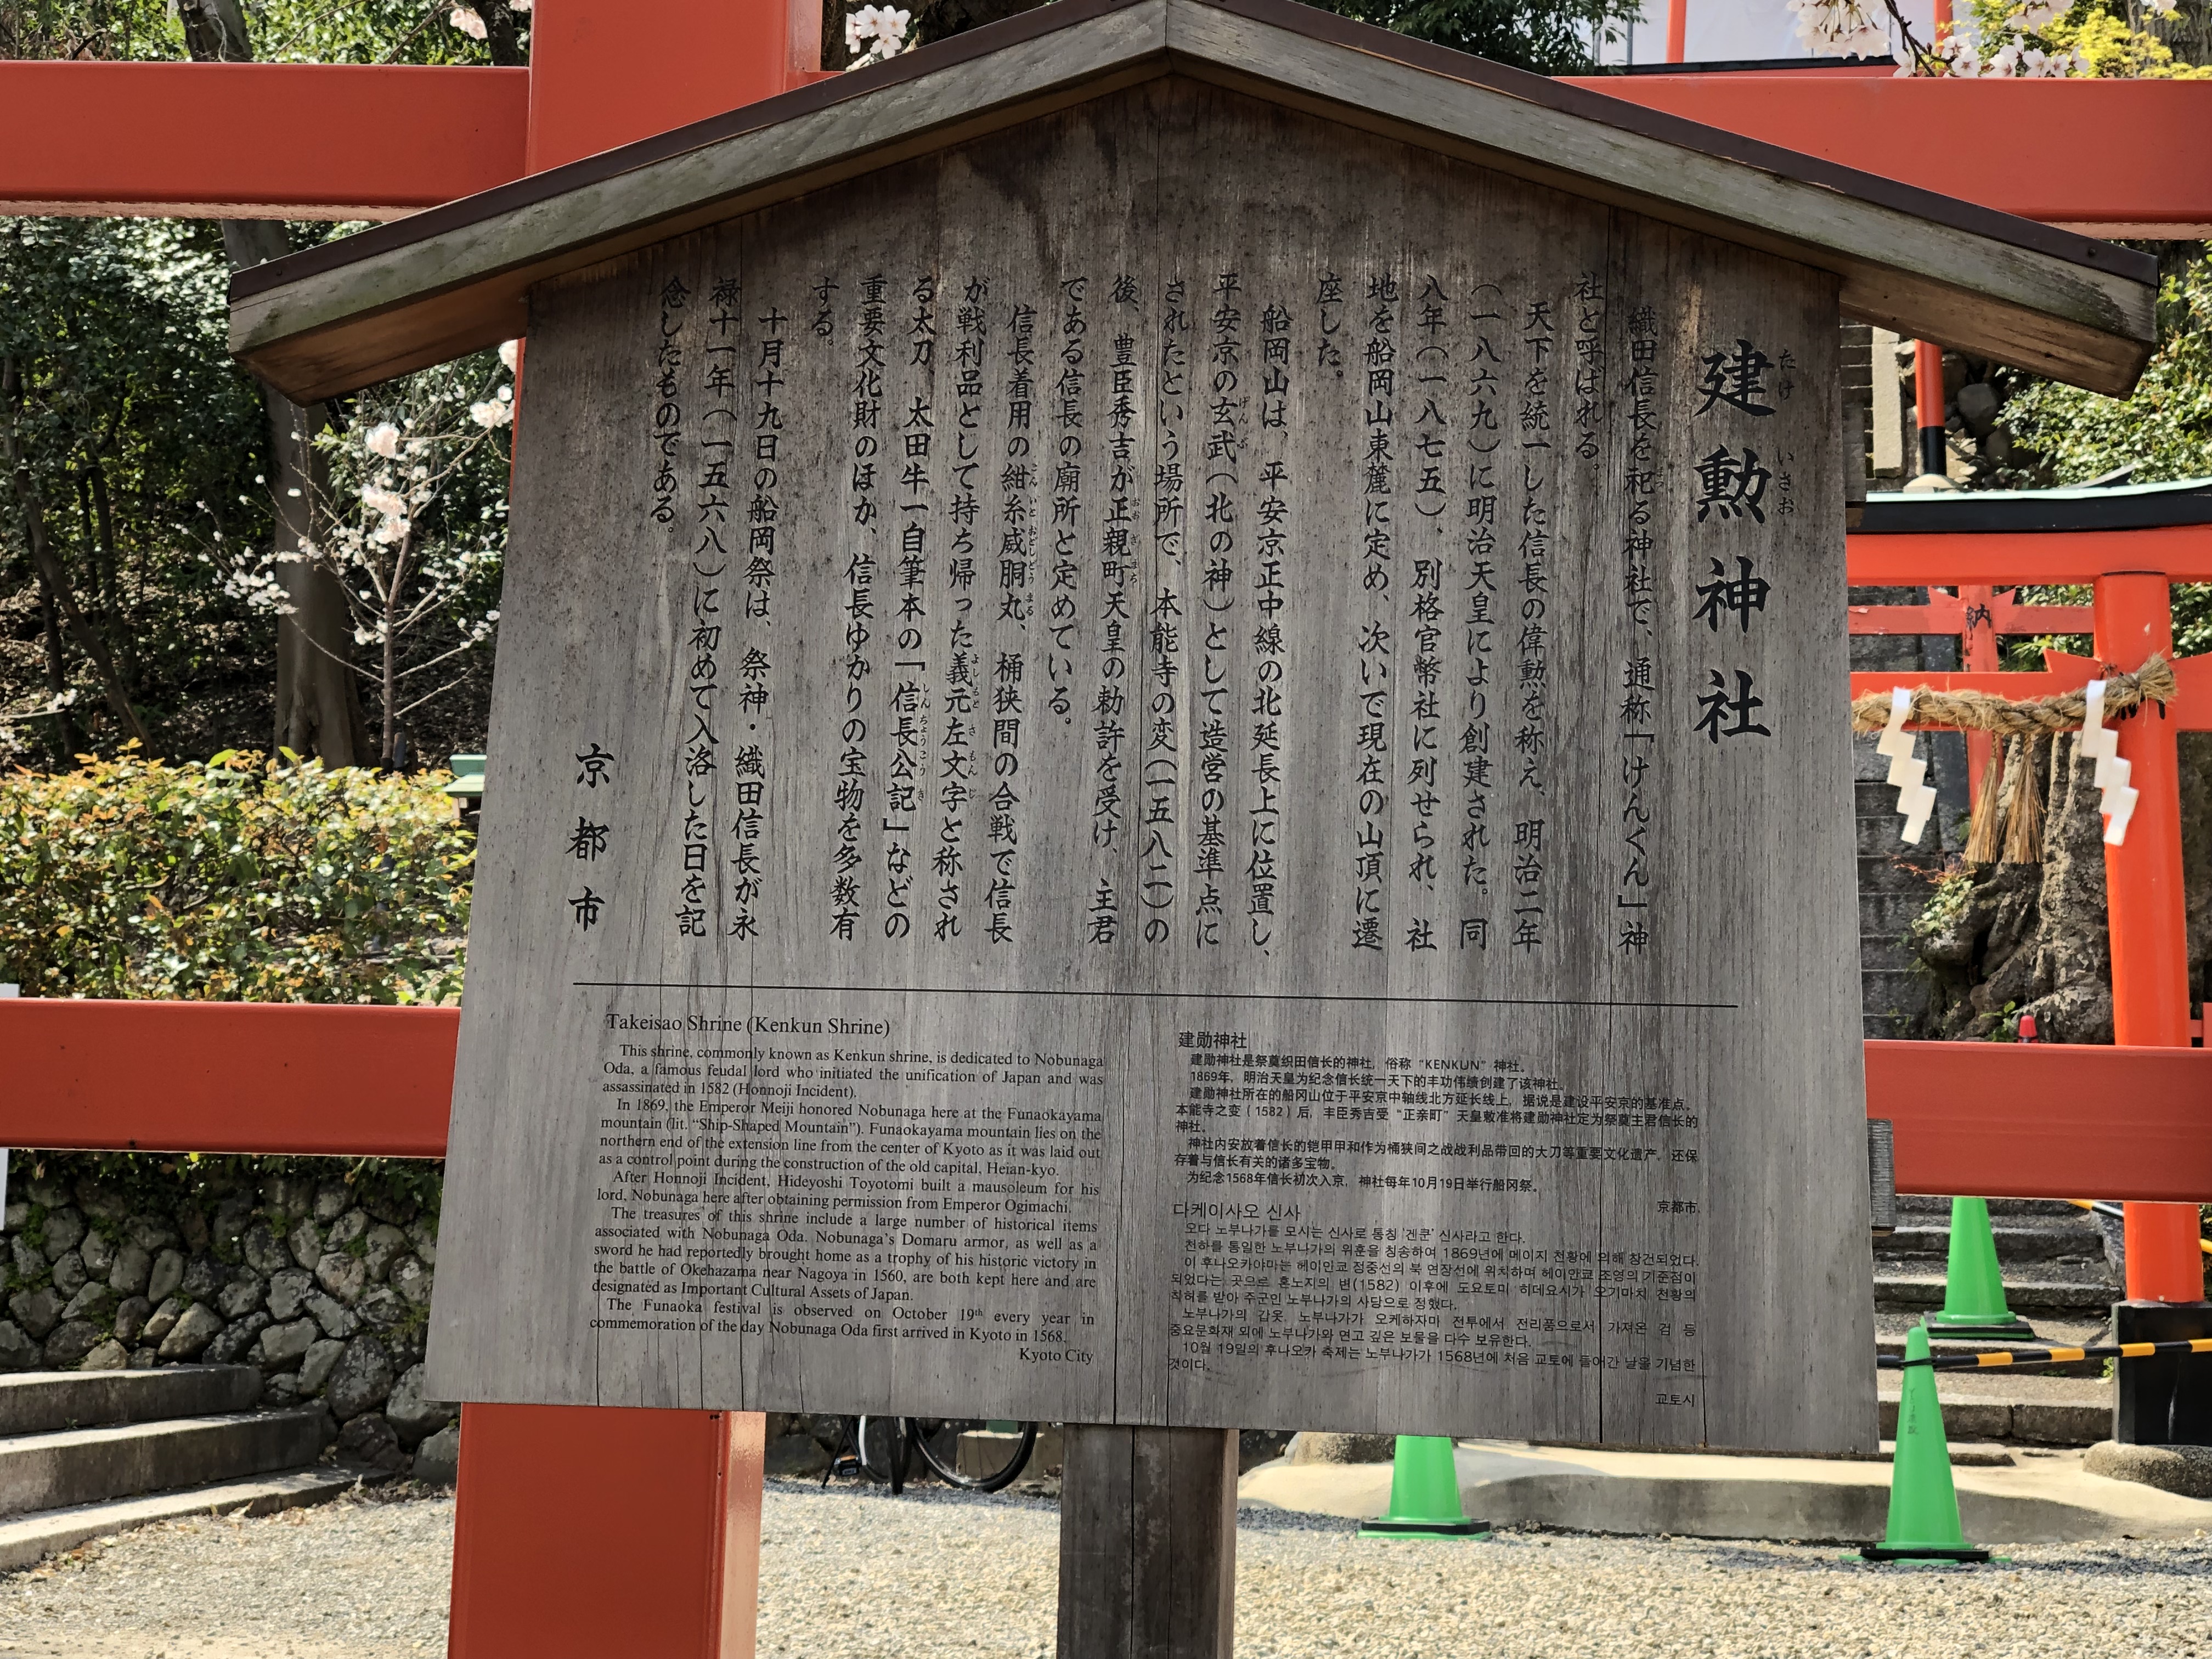 建勲神社
たけ いさお
織田信長を祀る神社で、通称「けんくん」神
社と呼ばれる。
天下を統一した信長の偉勲を称え、明治二年
（一八六九）に明治天皇により創建された。同
八年（一八七五）、別格官幣社に列せられ、社
地を船岡山東麓に定め、次いで現在の山頂に遷
座した。
船岡山は、平安京正中線の北延長上に位置し、
平安京の玄武（北の神）として造営の基準点に
されたという場所で、本能寺の変（一五八二）の
後、豊臣秀吉が正親町天皇の勅許を受け、主君
である信長の廟所と定めている。
信長着用の紺糸威胴丸、桶狭間の合戦で信長
が戦利品として持ち帰った義元左文字と称され
る太刀、太田牛一自筆本の「信長公記」などの
重要文化財のほか、信長ゆかりの宝物を多数有
する。
十月十九日の船岡祭は、祭神・織田信長が永
禄十一年（一五六八）に初めて入洛した日を記
念したものである。
京都市
Takeisao Shrine (Kenkun Shrine)
This shrine, commonly known as Kenkun shrine, is dedicated to Nobunaga
Oda, a famous feudal lord who initiated the unification of Japan and was
assassinated in 1582 (Honnoji Incident).
In 1869, the Emperor Meiji honored Nobunaga here at the Funaokayama
mountain (lit. “Ship-Shaped Mountain”). Funaokayama mountain lies on the
northern end of the extension line from the center of Kyoto as it was laid out
as a control point during the construction of the old capital, Heian-kyo.
After Honnoji Incident, Hideyoshi Toyotomi built a mausoleum for his
lord, Nobunaga here after obtaining permission from Emperor Ogimachi.
The treasures of this shrine include a large number of historical items
associated with Nobunaga Oda. Nobunaga's Domaru armor, as well as a
sword he had reportedly brought home as a trophy of his historic victory in
the battle of Okehazama near Nagoya in 1560, are both kept here and are
designated as Important Cultural Assets of Japan.
The Funaoka festival is observed on October 19th every year in
commemoration of the day Nobunaga Oda first arrived in Kyoto in 1568.
Kyoto City
建勋神社
建勋神社是祭奠织田信长的神社，俗称“KENKUN”神社。
1869年，明治天皇为纪念信长统一天下的丰功伟绩创建了该神社。
建勋神社所在的船冈山位于平安京中轴线北方延长线上，据说是建设平安京的基准点。
本能寺之变（1582）后，丰臣秀吉受“正亲町”天皇敕准将建勋神社定为祭奠主君信长的
神社。
神社内安放着信长的铠甲甲和作为桶狭间之战战利品带回的大刀等重要文化遗产，还保
存着与信长有关的诸多宝物。
为纪念1568年信长初次入京，神社每年10月19日举行船冈祭。
京都市
다케이사오 신사
오다 노부나가를 모시는 신사로 통칭 '겐쿤' 신사라고 한다.
천하를 통일한 노부나가의 위훈을 칭송하여 1869년에 메이지 천황에 의해 창건되었다.
이 후나오카야마는 헤이안쿄 정중선의 북 연장선에 위치하며 헤이안쿄 조영의 기준점이
되었다는 곳으로 혼노지의 변(1582) 이후에 도요토미 히데요시가 오기마치 천황의
칙허를 받아 주군인 노부나가의 사당으로 정했다.
노부나가의 갑옷, 노부나가가 오케하자마 전투에서 전리품으로서 가져온 검 등
중요문화재 외에 노부나가와 연고 깊은 보물을 다수 보유한다.
10월 19일의 후나오카 축제는 노부나가가 1568년에 처음 교토에 들어간 날을 기념한
것이다.
교토시
納